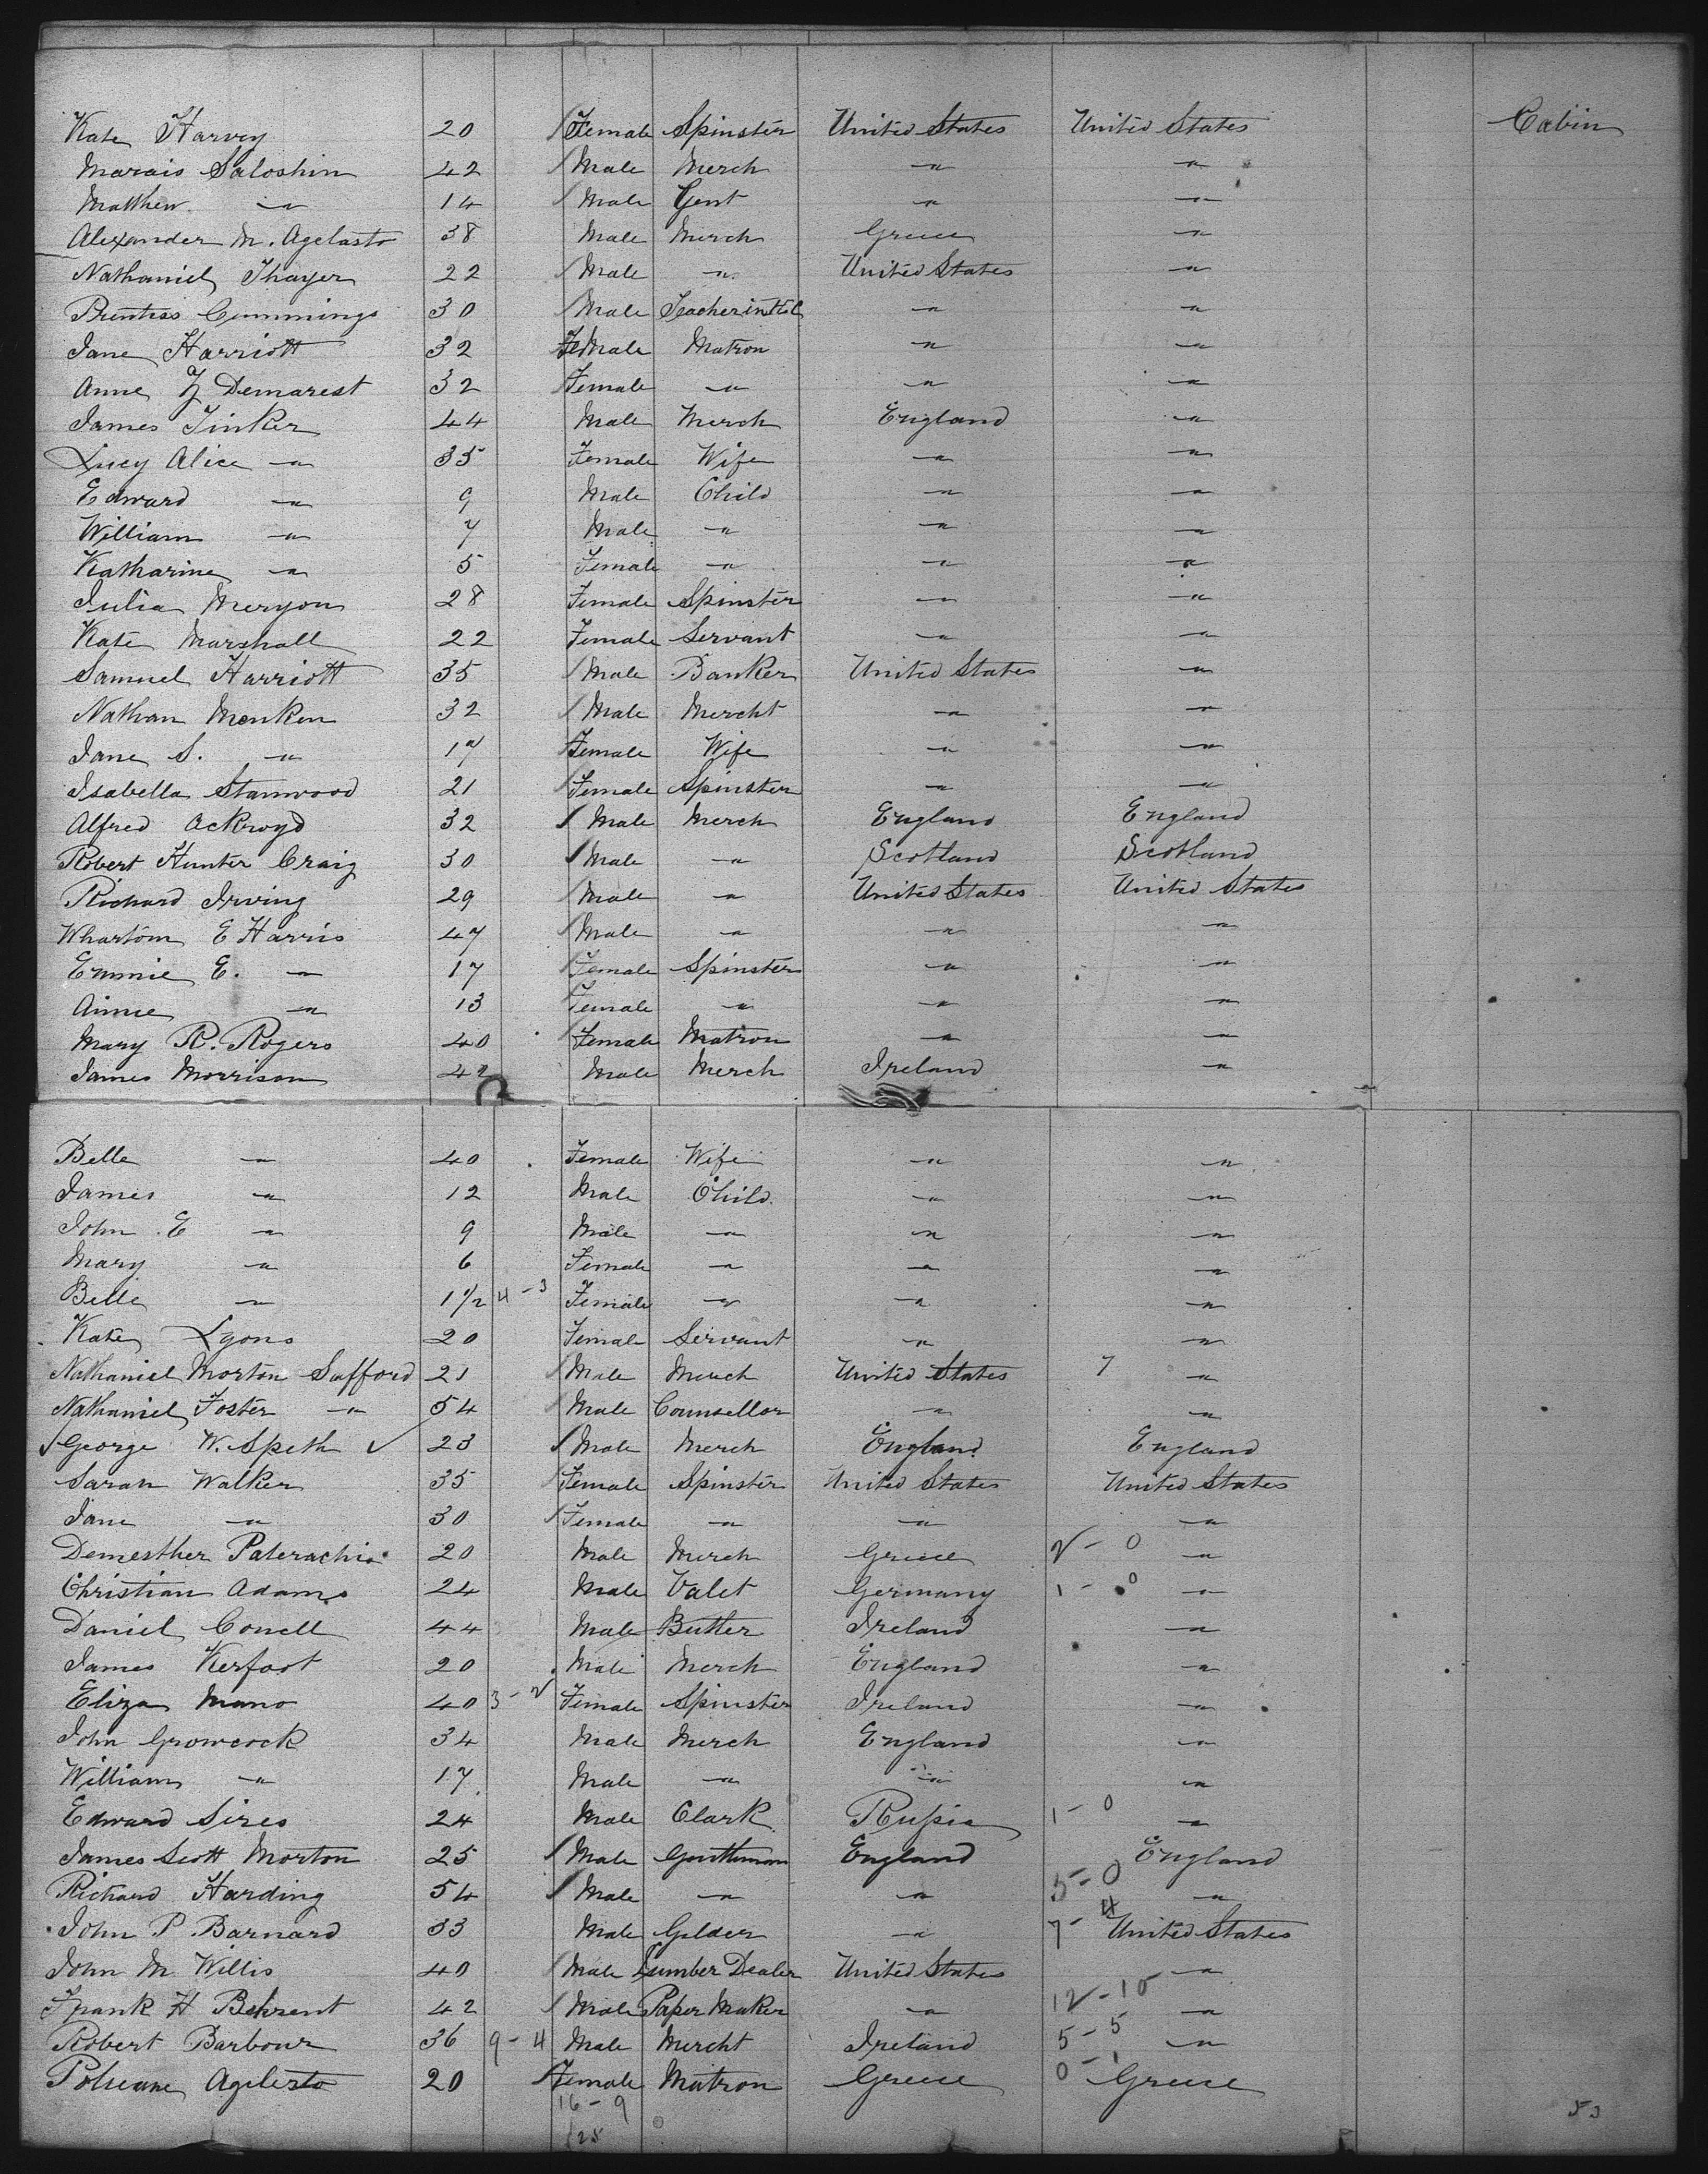 Kate Harvey 20 / Female Spinster United States United States Cabin
Marais Saloshin 42 / Male Merch " "
Matthew " 14 / Male Gent " "
Alexander M. Agelasto 38 Male Merch Greece "
Nathaniel Thayer 22 / Male " United States "
Prentiss Cummings 30 / Male "  "
Jane Harriott 32 Female Matron " "
Anne Z Demarest 32 / Female " " "
James Tinker 44 Male Merch England "
Lucy Alice " 35 Female Wife " "
Edward " 9 Male Child " "
William " 7 Male " " "
Katharine " 5 Female " " "
Julia Meryon 28 Female Spinster " "
Kate Marshall 22 Female Servant " "
Samuel Harriott 35 / Male Banker United States "
Nathan Menken 32 / Male Mercht " "
Jane S. " 17 / Female Wife " "
Isabella Stanwood 21 / Female Spinster " "
Alfred Ackroyd 32 / Male Merch England England
Robert Hunter Craig 30 / Male " Scotland Scotland
Richard Irving 29 / Male " United States United States
Wharton E Harris 47 / Male " " "
Emmie E. " 17 / Female Spinster " "
Aimee " 13 / Female " " "
Mary R. Rogers 40 / Female Matron " "
James Morrison 42 Male Merch Ireland "
Belle " 40 Female Wife " "
James " 12 Male Child " "
John E " 9 Male " " "
Mary " 6 Female " " "
Belle " 1 1/2 4-3 Female " " "
Kate Lyons 20 Female Servant " "
Nathaniel Morton Safford 21 / Male Merch United States 7 "
Nathaniel Foster " 54 / Male Counsellor " "
✓ George W. Speth ✓ 23 / Male Merch England England
Sarah Walker 35 / Female Spinster United States United States
Jane " 30 / Female " " "
Demesther Paterachio 20 Male Merch Greece 2-0 "
Christian Adams 24 Male Valet Germany 1-0 "
Daniel Conell 44 Male Butler Ireland "
James Kerfoot 20 Male Merch England "
Eliza Mano 40 3-2 Female Spinster Ireland "
John Growcock 34 Male Merch England "
William " 17 Male " " "
Edward Sires 24 Male Clark Russia 1-0 "
James Scott Morton 25 / Male Gentleman England England
Richard Harding 54 / Male " " 5-0 "
John P. Barnard 33 Male Gelder " 7-4 United States
John M Willis 40 / Male Lumber Dealer United States "
Frank H 42 / Male Paper Maker " 12-10 "
Robert Barbour 36 9-4 Male Mercht Ireland 5-5 "
Agelesto 20 / Female Matron Greece 0-1 Greece
16-9
/25
53